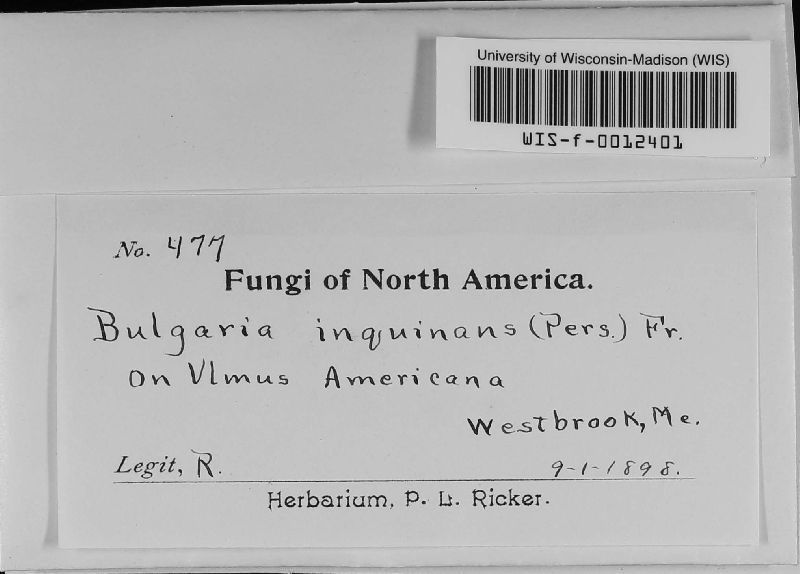 University of Wisconsin-Madison (WIS)
WIS-f-0012401
No. 477
Fungi of North America.
Bulgaria inquinans (Pers.) Fr.
on Vlmus Americana
Westbrook, Me.
Legit, R. 9-1-1898.
Herbarium, P. L. Ricker.